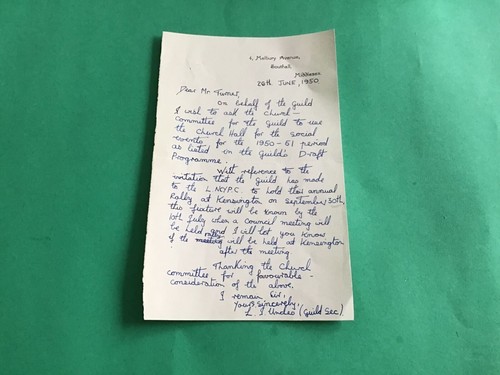 Avenue,
Southall,
Middlesex
26th JUNE, 1950
Dear Mr Turner,
On behalf of the Guild
I wish to ask the Church-
Committee for the Guild to use
the Church Hall for the social
events for the 1950-51 period
as listed in the Guild's Draft
Programme.
With reference to the
invitation that the Guild has made
to the L.NCYP.C. to hold their annual
Rally at Kensington on September 30th,
this feature will be known by the
10th July when a Council meeting will
be held and I will let you know
if the rally will be held at Kensington
after the meeting
Thanking the Church
Committee for favourable-
consideration of the above.
I remain Sir,
Yours sincerely,
L. J (Guild Sec).